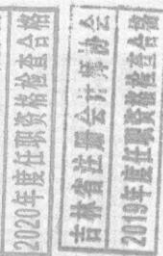 2020年度任职资格检查合格
吉林省注册会计师协会
2019年度任职资格检查合格